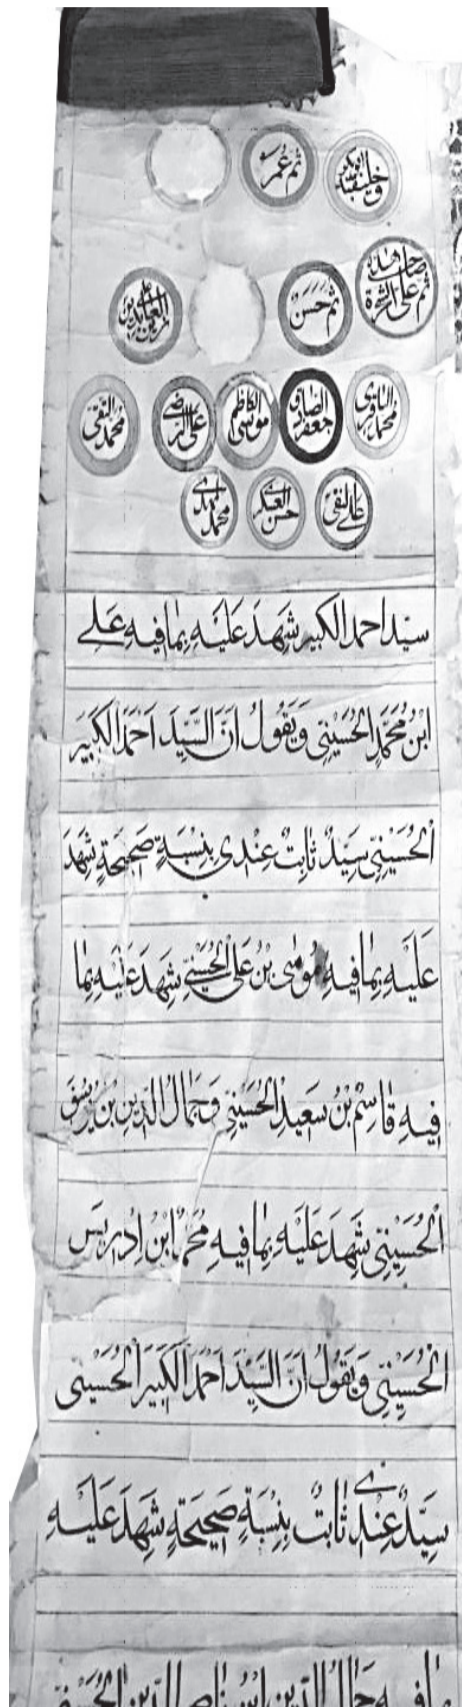 وخليفته ابوبكر ثم عمر
ثم على ثم حسن العابدين
محمد الباقر جعفر الصادق موسى الكاظم على الرضى محمد التقى
على النقى حسن العسكرى محمد مهدى
سيّد احمد الكبير شَهِدَ عَلَيْهِ بِمَا فِيهِ عَلى
ابْنُ مُحَمَّدِ الحُسَيْنِى وَيَقُولُ اَنَّ السَّيِّدَ اَحْمَدَ الكَبِيرَ
الْحُسَيْنِىّ سَيِّدٌ ثَابِتٌ عِنْدِى بِنِسْبَةٍ صَحِيحَةٍ شَهِدَ
عَلَيْهِ بِمَا فِيهِ مُوسَى بْنُ عَلَى الْحُسَيْنِى شَهِدَ عَلَيْهِ بِمَا
فِيهِ قَاسِمْ بْنُ سَعِيدِ الْحُسَيْنِى وَجَمَالُ الدِّينِ بْنُ
الْحُسَيْنِى شَهِدَ عَلَيْهِ بِمَا فِيهِ مُحَمَّدُ ابْنُ اِدْرِيسَ
الْحُسَيْنِى وَيَقُولُ اَنَّ السَّيِّدَ اَحْمَدَ الْكَبِيرَ الْحُسَيْنِى
سَيِّدٌ عِنْدِى ثَابِتٌ بِنِسْبَةٍ صَحِيحَةٍ شَهِدَ عَلَيْهِ